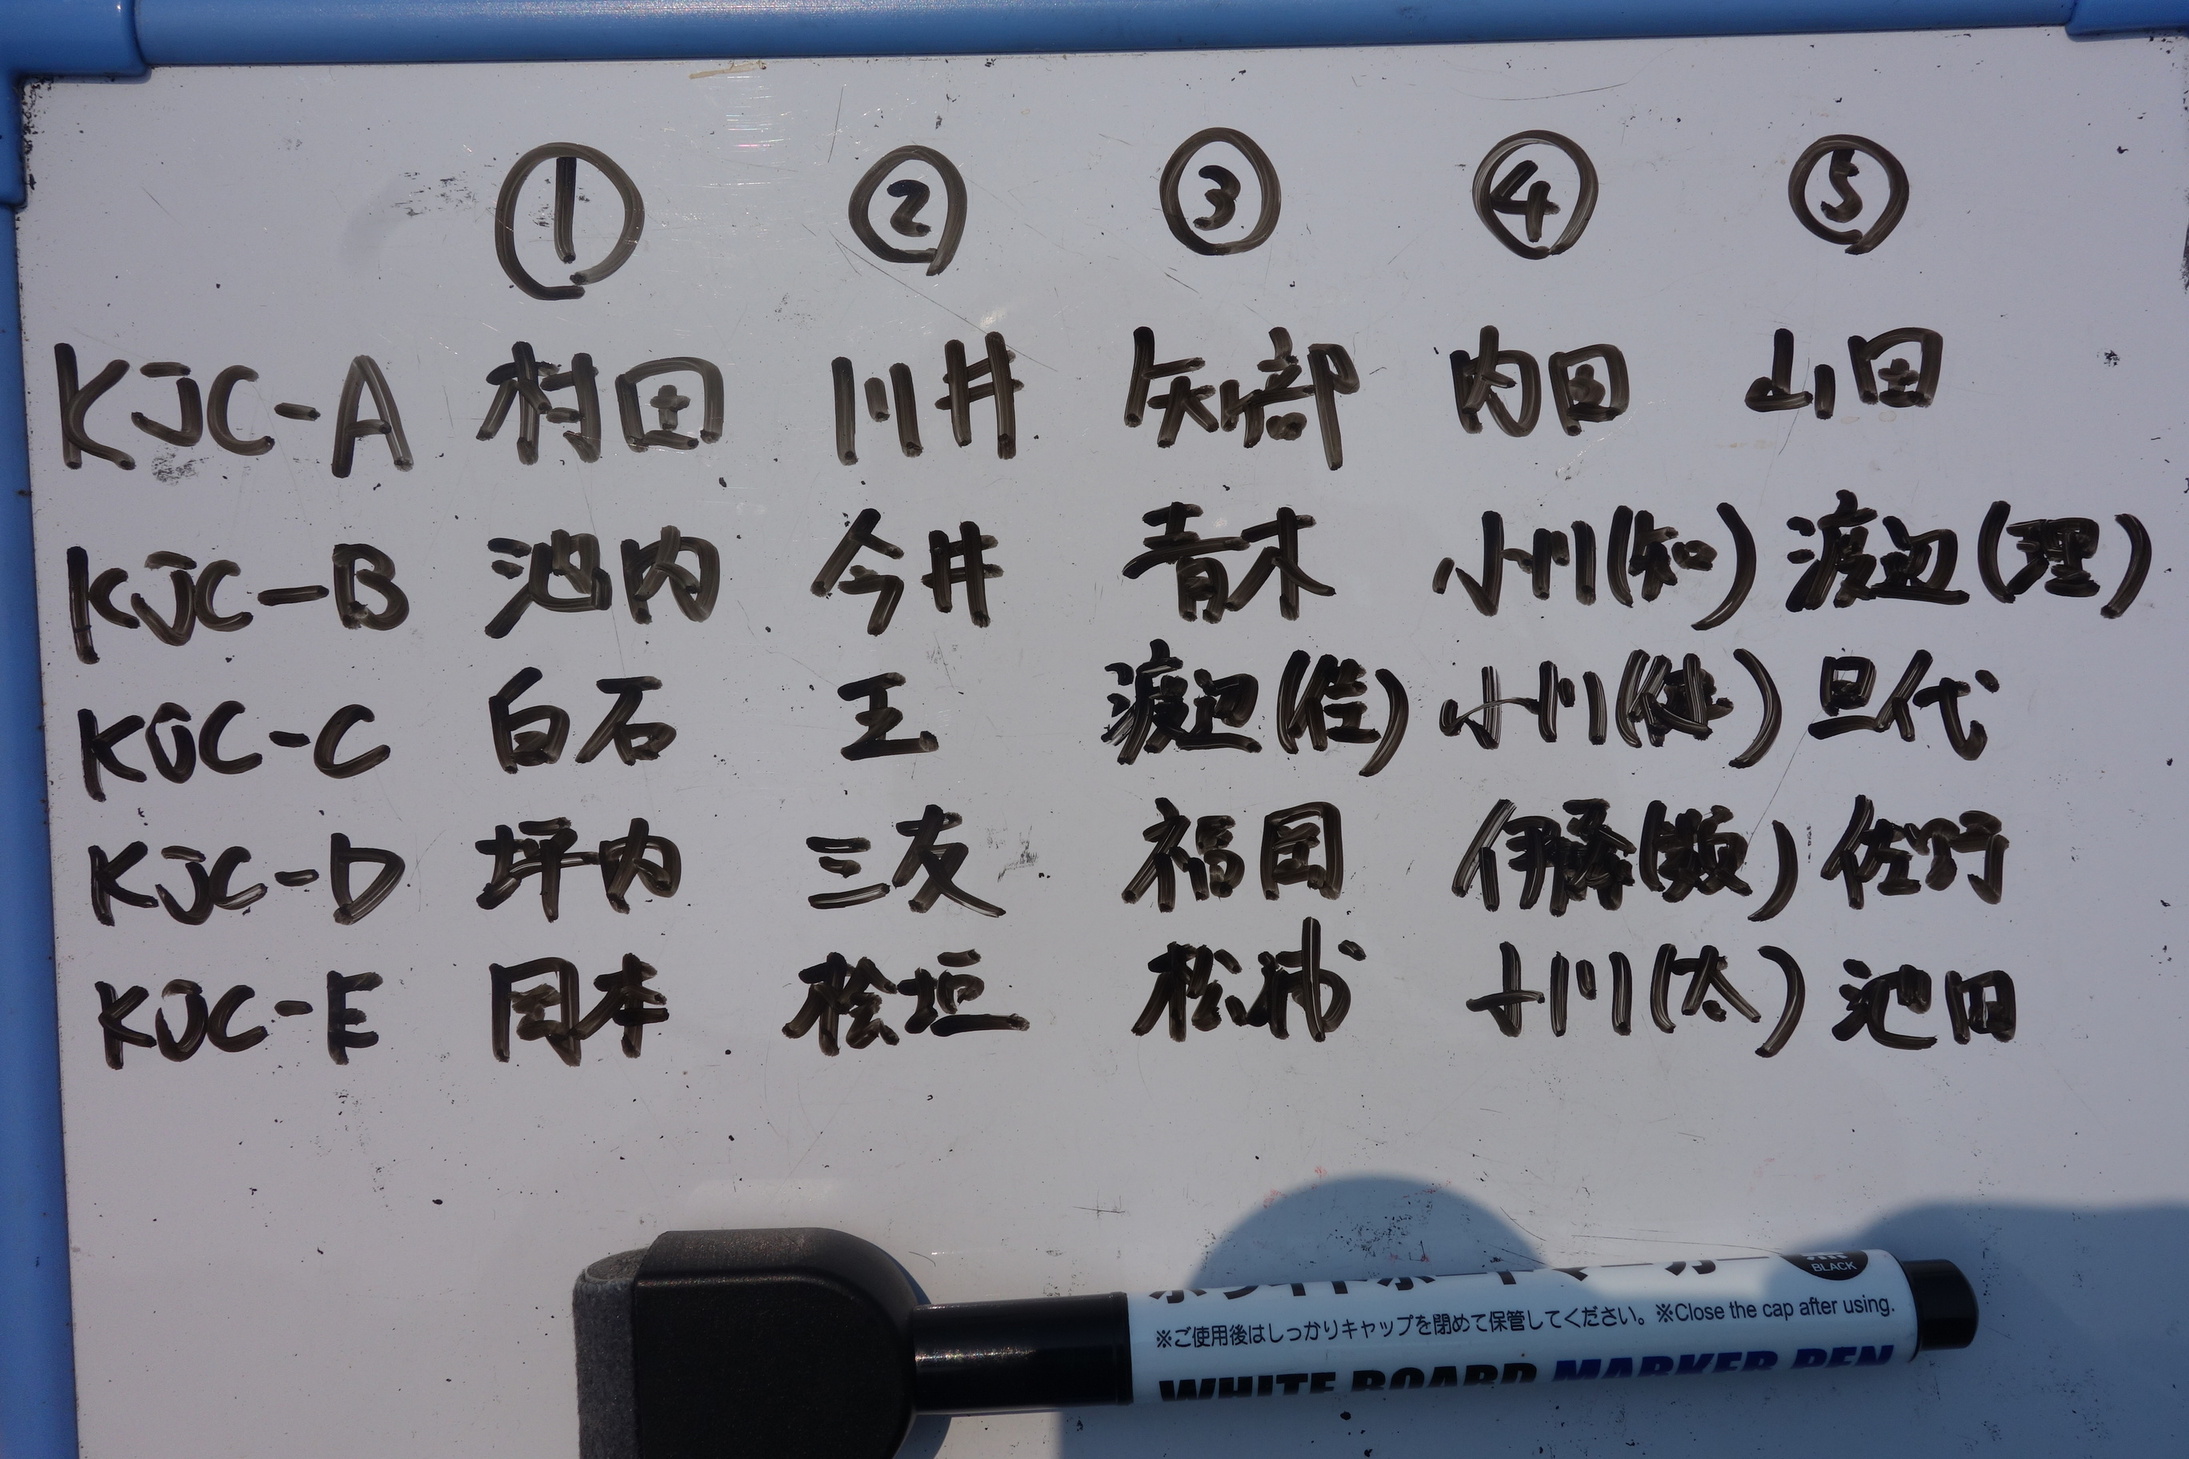 ① ② ③ ④ ⑤
KJC-A 村田 川井 矢部 内田 山田
KJC-B 池内 今井 青木 小川(知) 渡辺(理)
KJC-C 白石 王 渡辺(佳) 小川(健) 田代
KJC-D 坪内 三友 福岡 伊藤( ) 佐野
KJC-E 岡本 桧垣 松浦 小川(太) 池田
ホワイトボードマーカー
BLACK
※ご使用後はしっかりキャップを閉めて保管してください。※Close the cap after using.
WHITE BOARD MARKER PEN